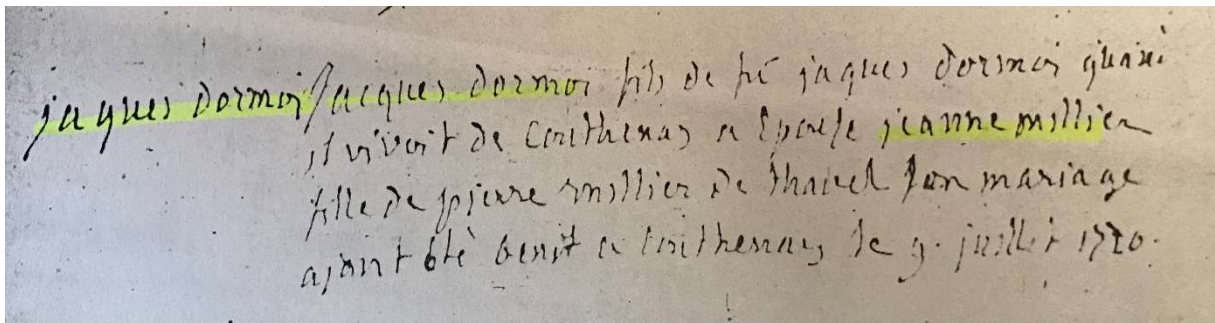 jaques dormoi Jacques dormoi fils de fû jaques dormoi quand
il vivoit de Corthenay a Epousé jeanne millier
fille de pierre millier de thavel son mariage
ajant êtè benit a Corthenay le 9. juillet 1720.